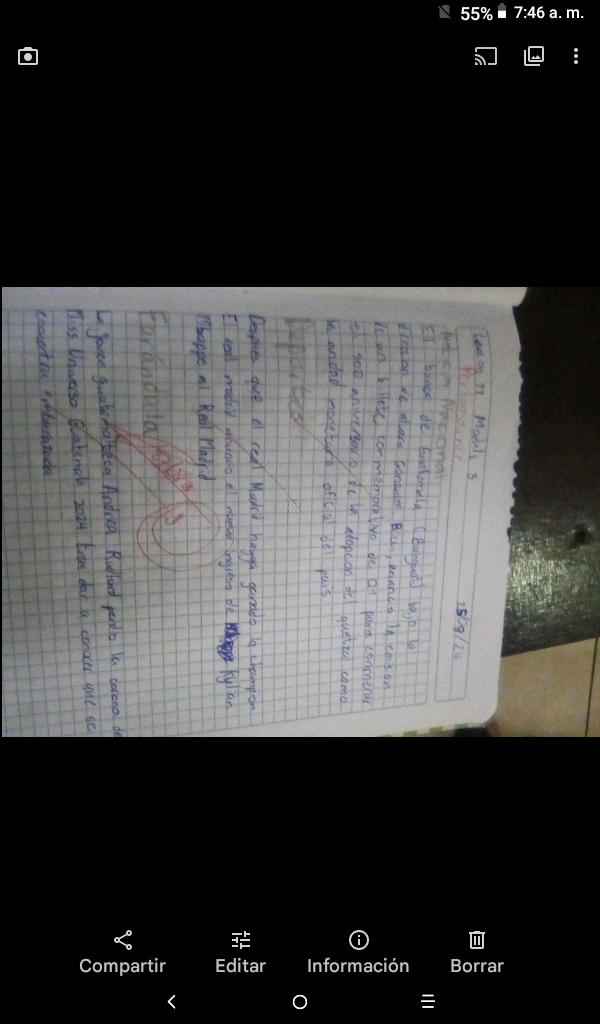 55% 7:46 a. m.
Leccion 11 Modulo 3 15/09/24
Performance
Area Nacional
El banco de Guatemala (Banguat) bajo la
de Alvaro González Ricci, anuncio la emision
de un billete conmemorativo de Q1 para conmemorar
el 100 aniversario de la adopcion del quetzal como
la unidad monetaria oficial del pais
Deporte
Despues que el real Madrid haya ganado la champion
El real madrid anuncio el nuevo ingreso de Kylian
Mbappe al Real Madrid
Farándula
La joven guatemalteca Andrea Radford perdio la corona de
Miss Universo Guatemala 2024 tras dar a conocer que se
encuentra embarazada
Compartir Editar Información Borrar